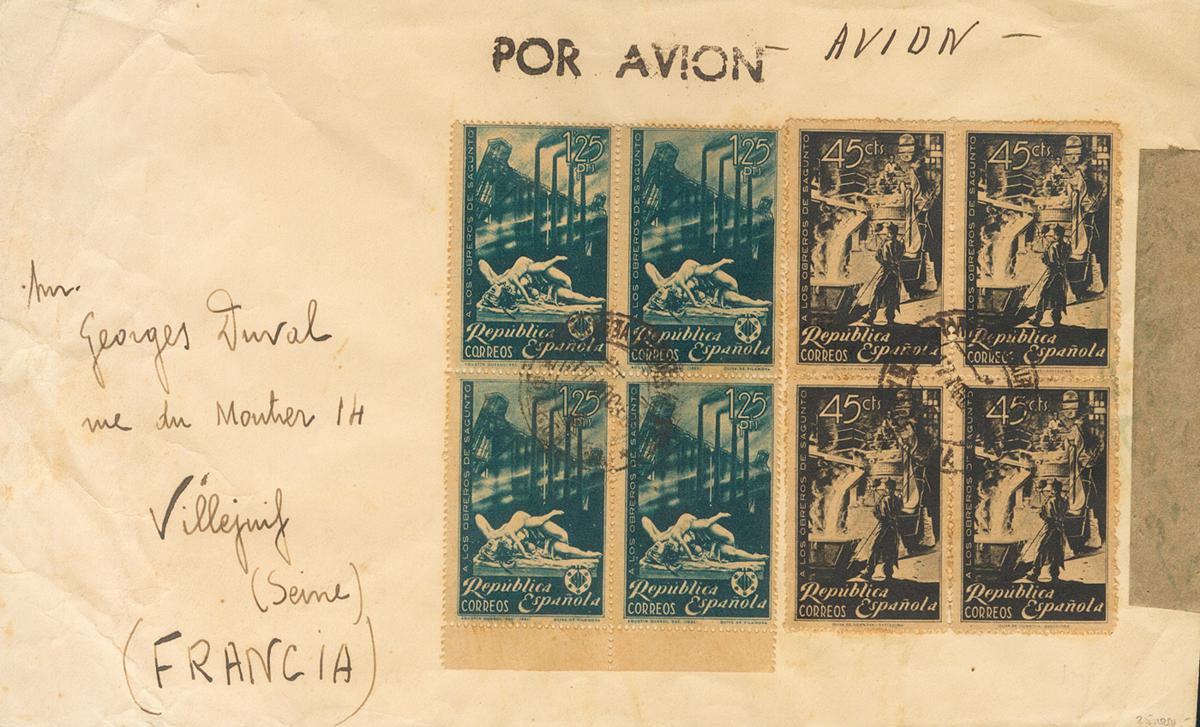 POR AVION — AVION —
Mr.
Georges Duval
rue du Moutier 14
Villejuif
(Seine)
(FRANCIA)
A LOS OBREROS DE SAGUNTO
1'25
pts
República
CORREOS Española
A LOS OBREROS DE SAGUNTO
1'25
pts
República
CORREOS Española
A LOS OBREROS DE SAGUNTO
45 cts
República
CORREOS Española
A LOS OBREROS DE SAGUNTO
45 cts
República
CORREOS Española
A LOS OBREROS DE SAGUNTO
1'25
pts
República
CORREOS Española
A LOS OBREROS DE SAGUNTO
1'25
pts
República
CORREOS Española
A LOS OBREROS DE SAGUNTO
45 cts
República
CORREOS Española
A LOS OBREROS DE SAGUNTO
45 cts
República
CORREOS Española